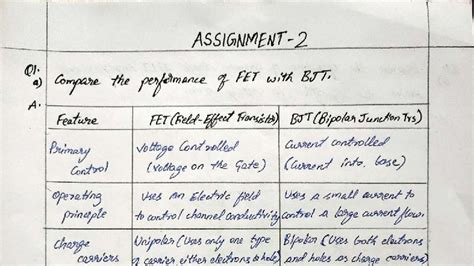 ASSIGNMENT-2
Q1.
a) Compare the performance of FET with BJT.
A.
Feature
FET (Field-Effect Transistor)
BJT (Bipolar Junction Trs)
Primary
Control
Voltage Controlled
(Voltage on the Gate)
Current controlled
(Current into. base)
Operating
principle
Uses an Electric field
to control channel conductivity
Uses a small current to
control a large current flow.
Charge
carriers
Unipolar (Uses only one type
of carrier, either electrons or hole)
Bipolar (Uses both electrons
and holes as charge carriers)